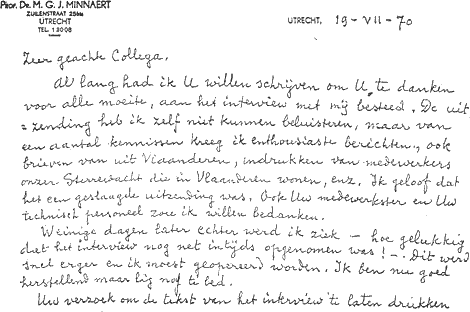 PROF. DR. M. G. J. MINNAERT
ZUILENSTRAAT 25bis
UTRECHT
TEL. 13008
UTRECHT, 19-VII-70
Zeer geachte Collega,
Al lang had ik U willen schrijven om U te danken
voor alle moeite, aan het interview met mij besteed. De uit
=zending heb ik zelf niet kunnen beluisteren, maar van
een aantal kennissen kreeg ik enthousiaste berichten, ook
brieven van uit Vlaanderen, indrukken van medewerkers
onzer Sterrewacht die in Vlaanderen wonen, enz. Ik geloof dat
het een geslaagde uitzending was. Ook Uw medewerkster en Uw
technisch personeel zou ik willen bedanken.
Weinige dagen later echter werd ik ziek – hoe gelukkig
dat het interview nog net intijds opgenomen was! – Dit werd
snel erger en ik moest geopereerd worden. Ik ben nu goed
herstellend maar lig nog te bed.
Uw verzoek om de tekst van het interview te laten drukken